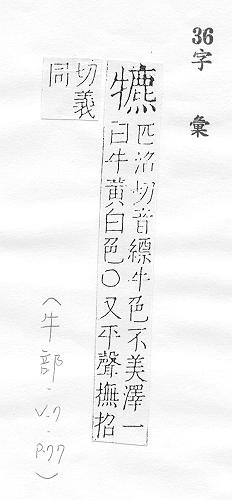 36
字彙
犥
匹沼切音縹牛色不美澤一
曰牛黃白色○又平聲撫招
切義
同
(牛部·V.7·P.77)